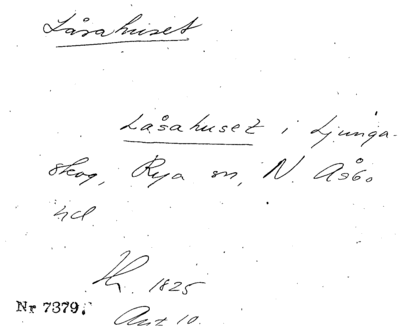 Låsahuset
Låsahuset i Ljunga-
skog, Rya sn, N. Åsbo
hd.
1825
Ant 10.
Nr 7379.